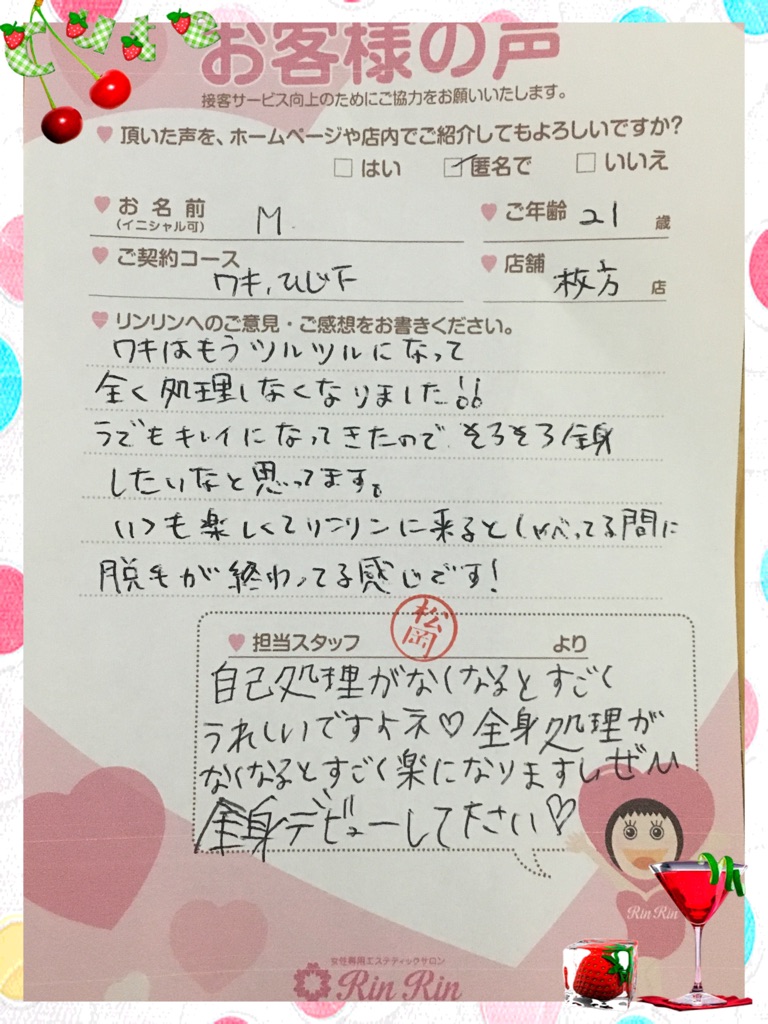 Cute
お客様の声
接客サービス向上のためにご協力をお願いいたします。
頂いた声を、ホームページや店内でご紹介してもよろしいですか?
□はい □匿名で □いいえ
お名前 M. ご年齢 21 歳
(イニシャル可)
ご契約コース ワキ、ひじ下 店舗 枚方 店
リンリンへのご意見・ご感想をお書きください。
ワキはもうツルツルになって
全く処理しなくなりました!!
うでもキレイになってきたので そろそろ全身
したいなと思ってます。
いつも楽しくてリンリンに来るとしゃべってる間に
脱毛が終わってる感じです!
担当スタッフ 松岡 より
自己処理がなくなるとすごく
うれしいですよネ♡全身処理が
なくなるとすごく楽になりますしぜひ
全身デビューして下さい♡
Rin Rin
女性専用エステティックサロン
Rin Rin